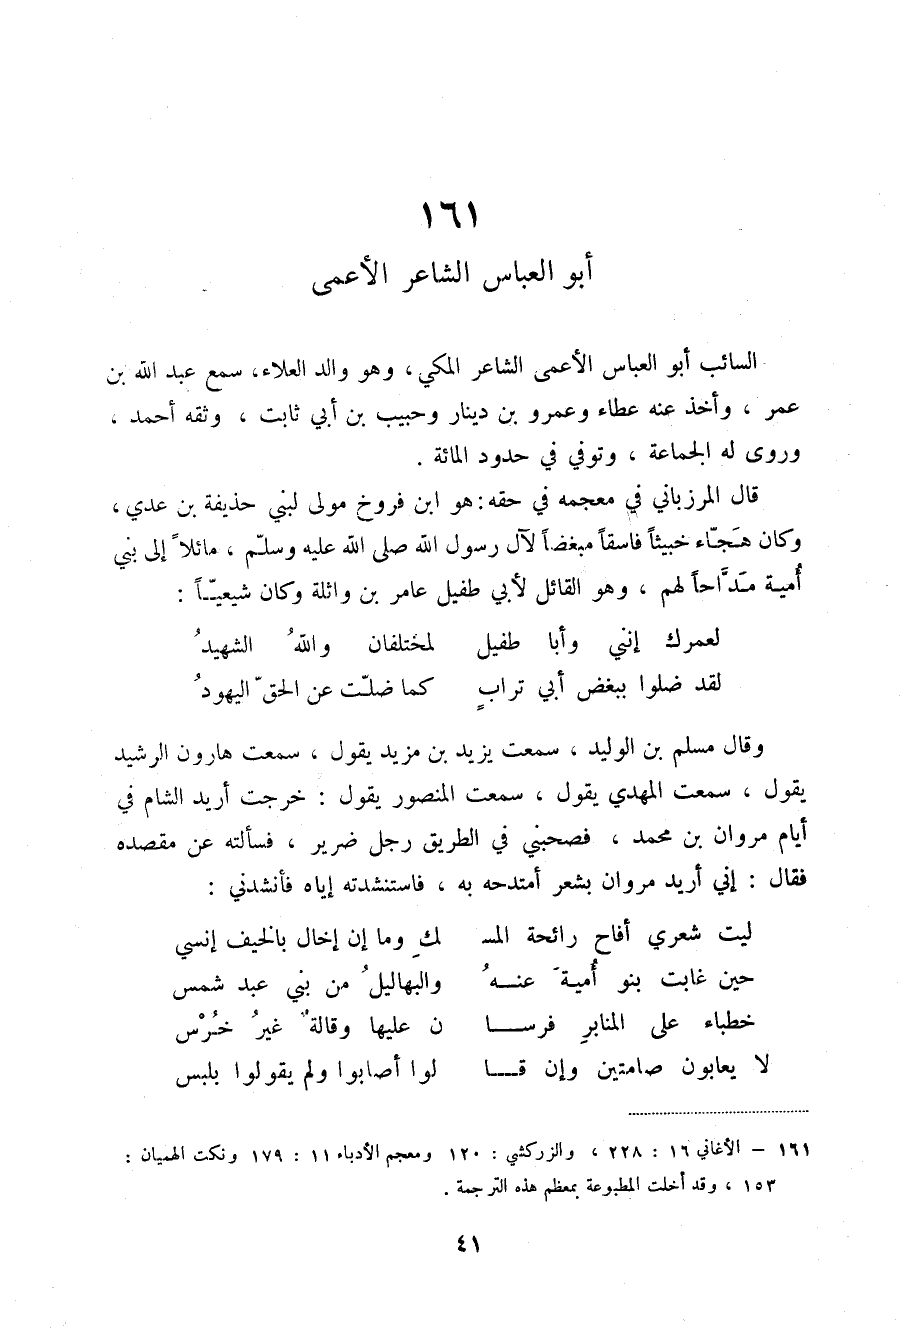 ١٦١
أبو العباس الشاعر الأعمى
السائب أبو العباس الأعمى الشاعر المكي ، وهو والد العلاء، سمع عبد الله بن
عمر ، وأخذ عنه عطاء وعمرو بن دينار وحبيب بن أبي ثابت ، وثقه أحمد ،
وروى له الجماعة ، وتوفي في حدود المائة .
قال المرزباني في معجمه في حقه: هو ابن فروخ مولى لبني حذيفة بن عدي ،
وكان هَجّاء خبيثاً فاسقاً مبغضاً لآل رسول الله صلى الله عليه وسلّم ، مائلاً إلى بني
أُمية مَدَّاحاً لهم ، وهو القائل لأبي طفيل عامر بن واثلة وكان شيعيّاً :
لعمرك إنني وأبا طفيل لمختلفان واللهُ الشهيدُ
لقد ضلوا ببغض أبي ترابٍ كما ضلّت عن الحقّ اليهودُ
وقال مسلم بن الوليد ، سمعت يزيد بن مزيد يقول ، سمعت هارون الرشيد
يقول ، سمعت المهدي يقول ، سمعت المنصور يقول : خرجت أريد الشام في
أيام مروان بن محمد ، فصحبني في الطريق رجل ضرير ، فسألته عن مقصده
فقال : إني أريد مروان بشعر أمتدحه به ، فاستنشدته إياه فأنشدني :
ليت شعري أفاح رائحة المسـ ـلكِ وما إن إخال بالخيف إنسي
حين غابت بنو أُميةَ عنهُ والبهاليلُ من بني عبد شمس
خطباء على المنابرِ فرسا ن عليها وقالةٌ غيرُ خُرْس
لا يعابون صامتين وإن قا لوا أصابوا ولم يقولوا بلبس
١٦١ – الأغاني ١٦ : ٢٢٨ ، والزركشي : ١٢٠ ومعجم الأدباء ١١ : ١٧٩ ونكت الهميان :
١٥٣ ، وقد أخلت المطبوعة بمعظم هذه الترجمة .
٤١